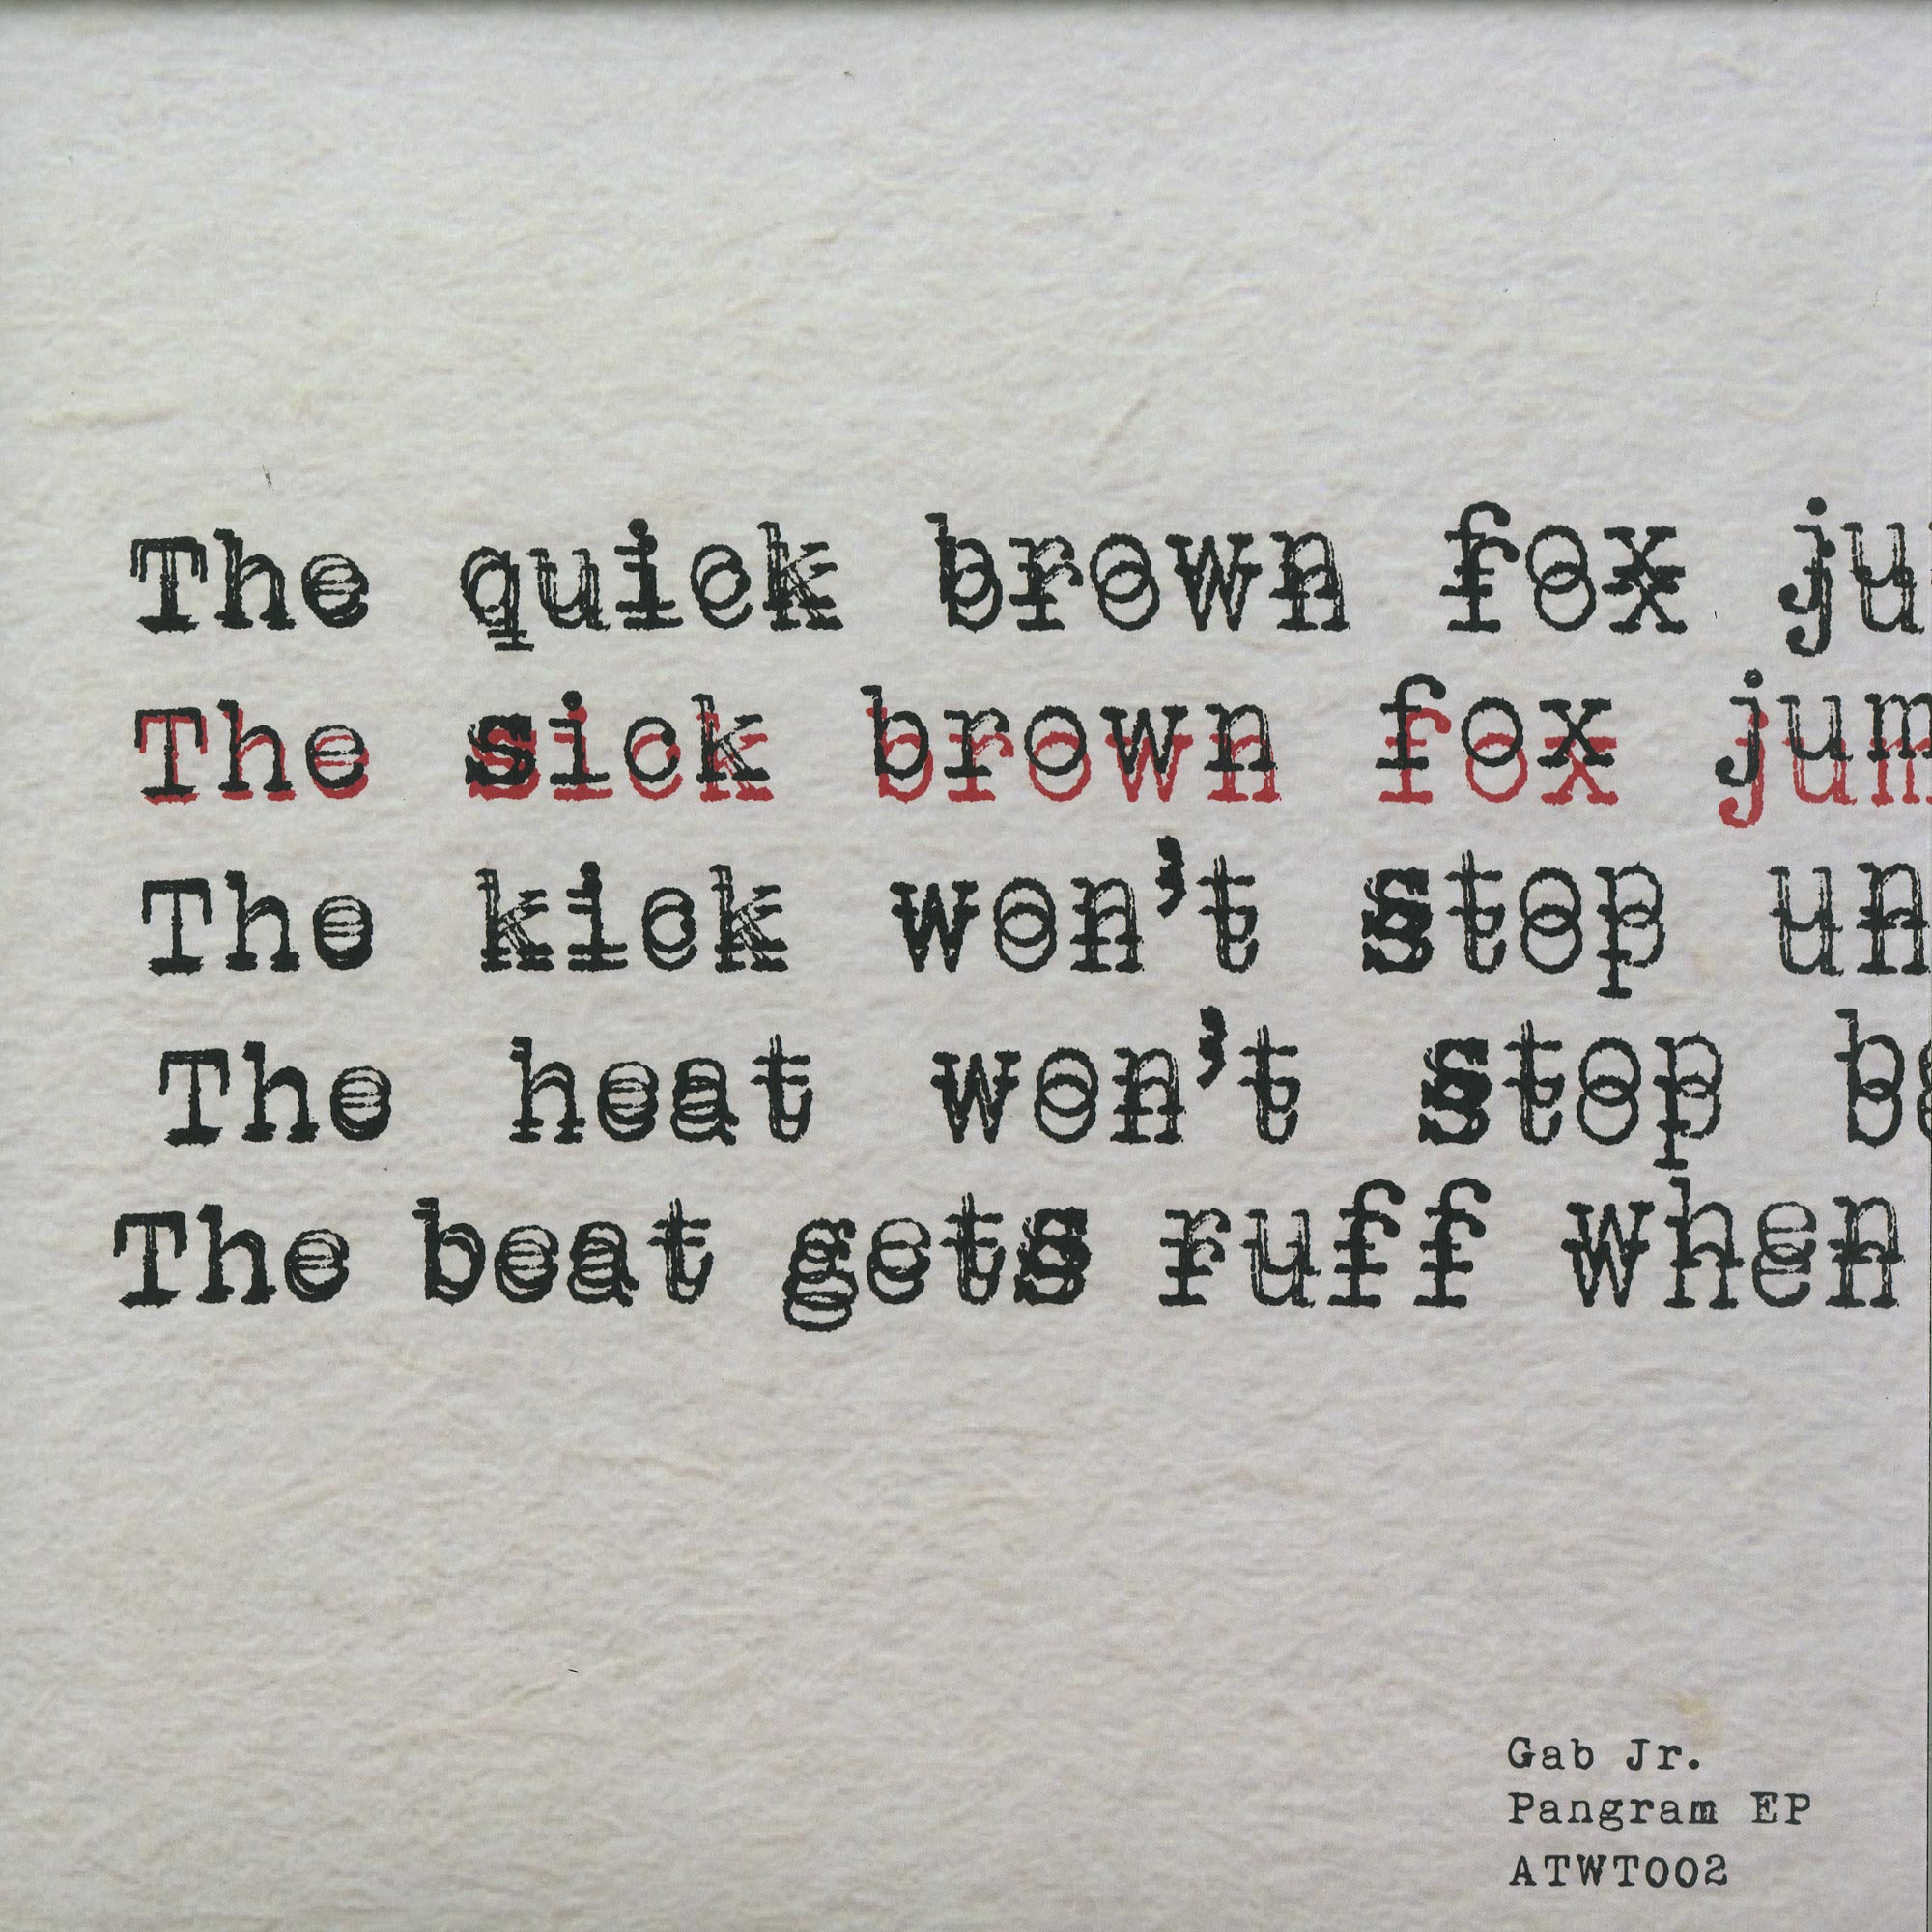 The quick brown fox ju
The sick brown fox jum
The kick won't stop un
The heat won't stop be
The beat gets ruff when
Gab Jr.
Pangram EP
ATWT002